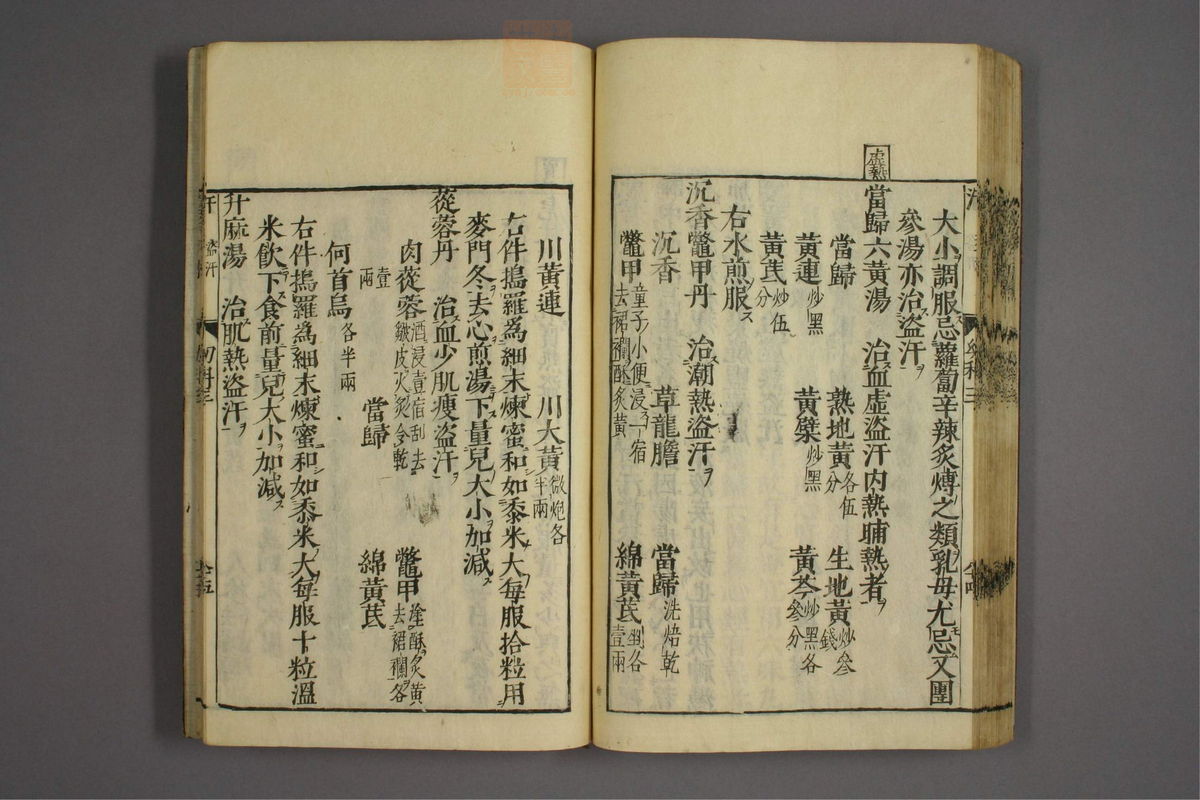 大小調服忌蘿蔔辛辣炙煿之類乳母尤忌又團
參湯亦治盜汗
虛熱
當歸六黃湯 治血虛盜汗内熱晡熱者
當歸 熟地黃各伍分 生地黃炒參錢
黃連炒黑 黃檗炒黑 黃芩炒黑各參分
黃芪炒伍分
右水煎服
沉香鼈甲丹 治潮熱盜汗
沉香 草龍膽 當歸洗焙乾
鼈甲童子小便浸一宿去裙襴酥炙黃 綿黃芪剉各壹兩
川黃連 川大黃微炮各半兩
右件搗羅為細末煉蜜和如黍米大每服拾粒用
麥門冬去心煎湯下量兒大小加減
蓯蓉丹 治血少肌瘦盜汗
肉蓯蓉酒浸壹宿刮去皺皮火炙令乾壹兩 當歸 鼈甲塗酥炙黃去裙襴各
何首烏各半兩 綿黃芪
右件搗羅為細末煉蜜和如黍米大每服十粒溫
米飲下食前量兒大小加減
升麻湯 治肌熱盜汗
汗 盜汗 幼科三